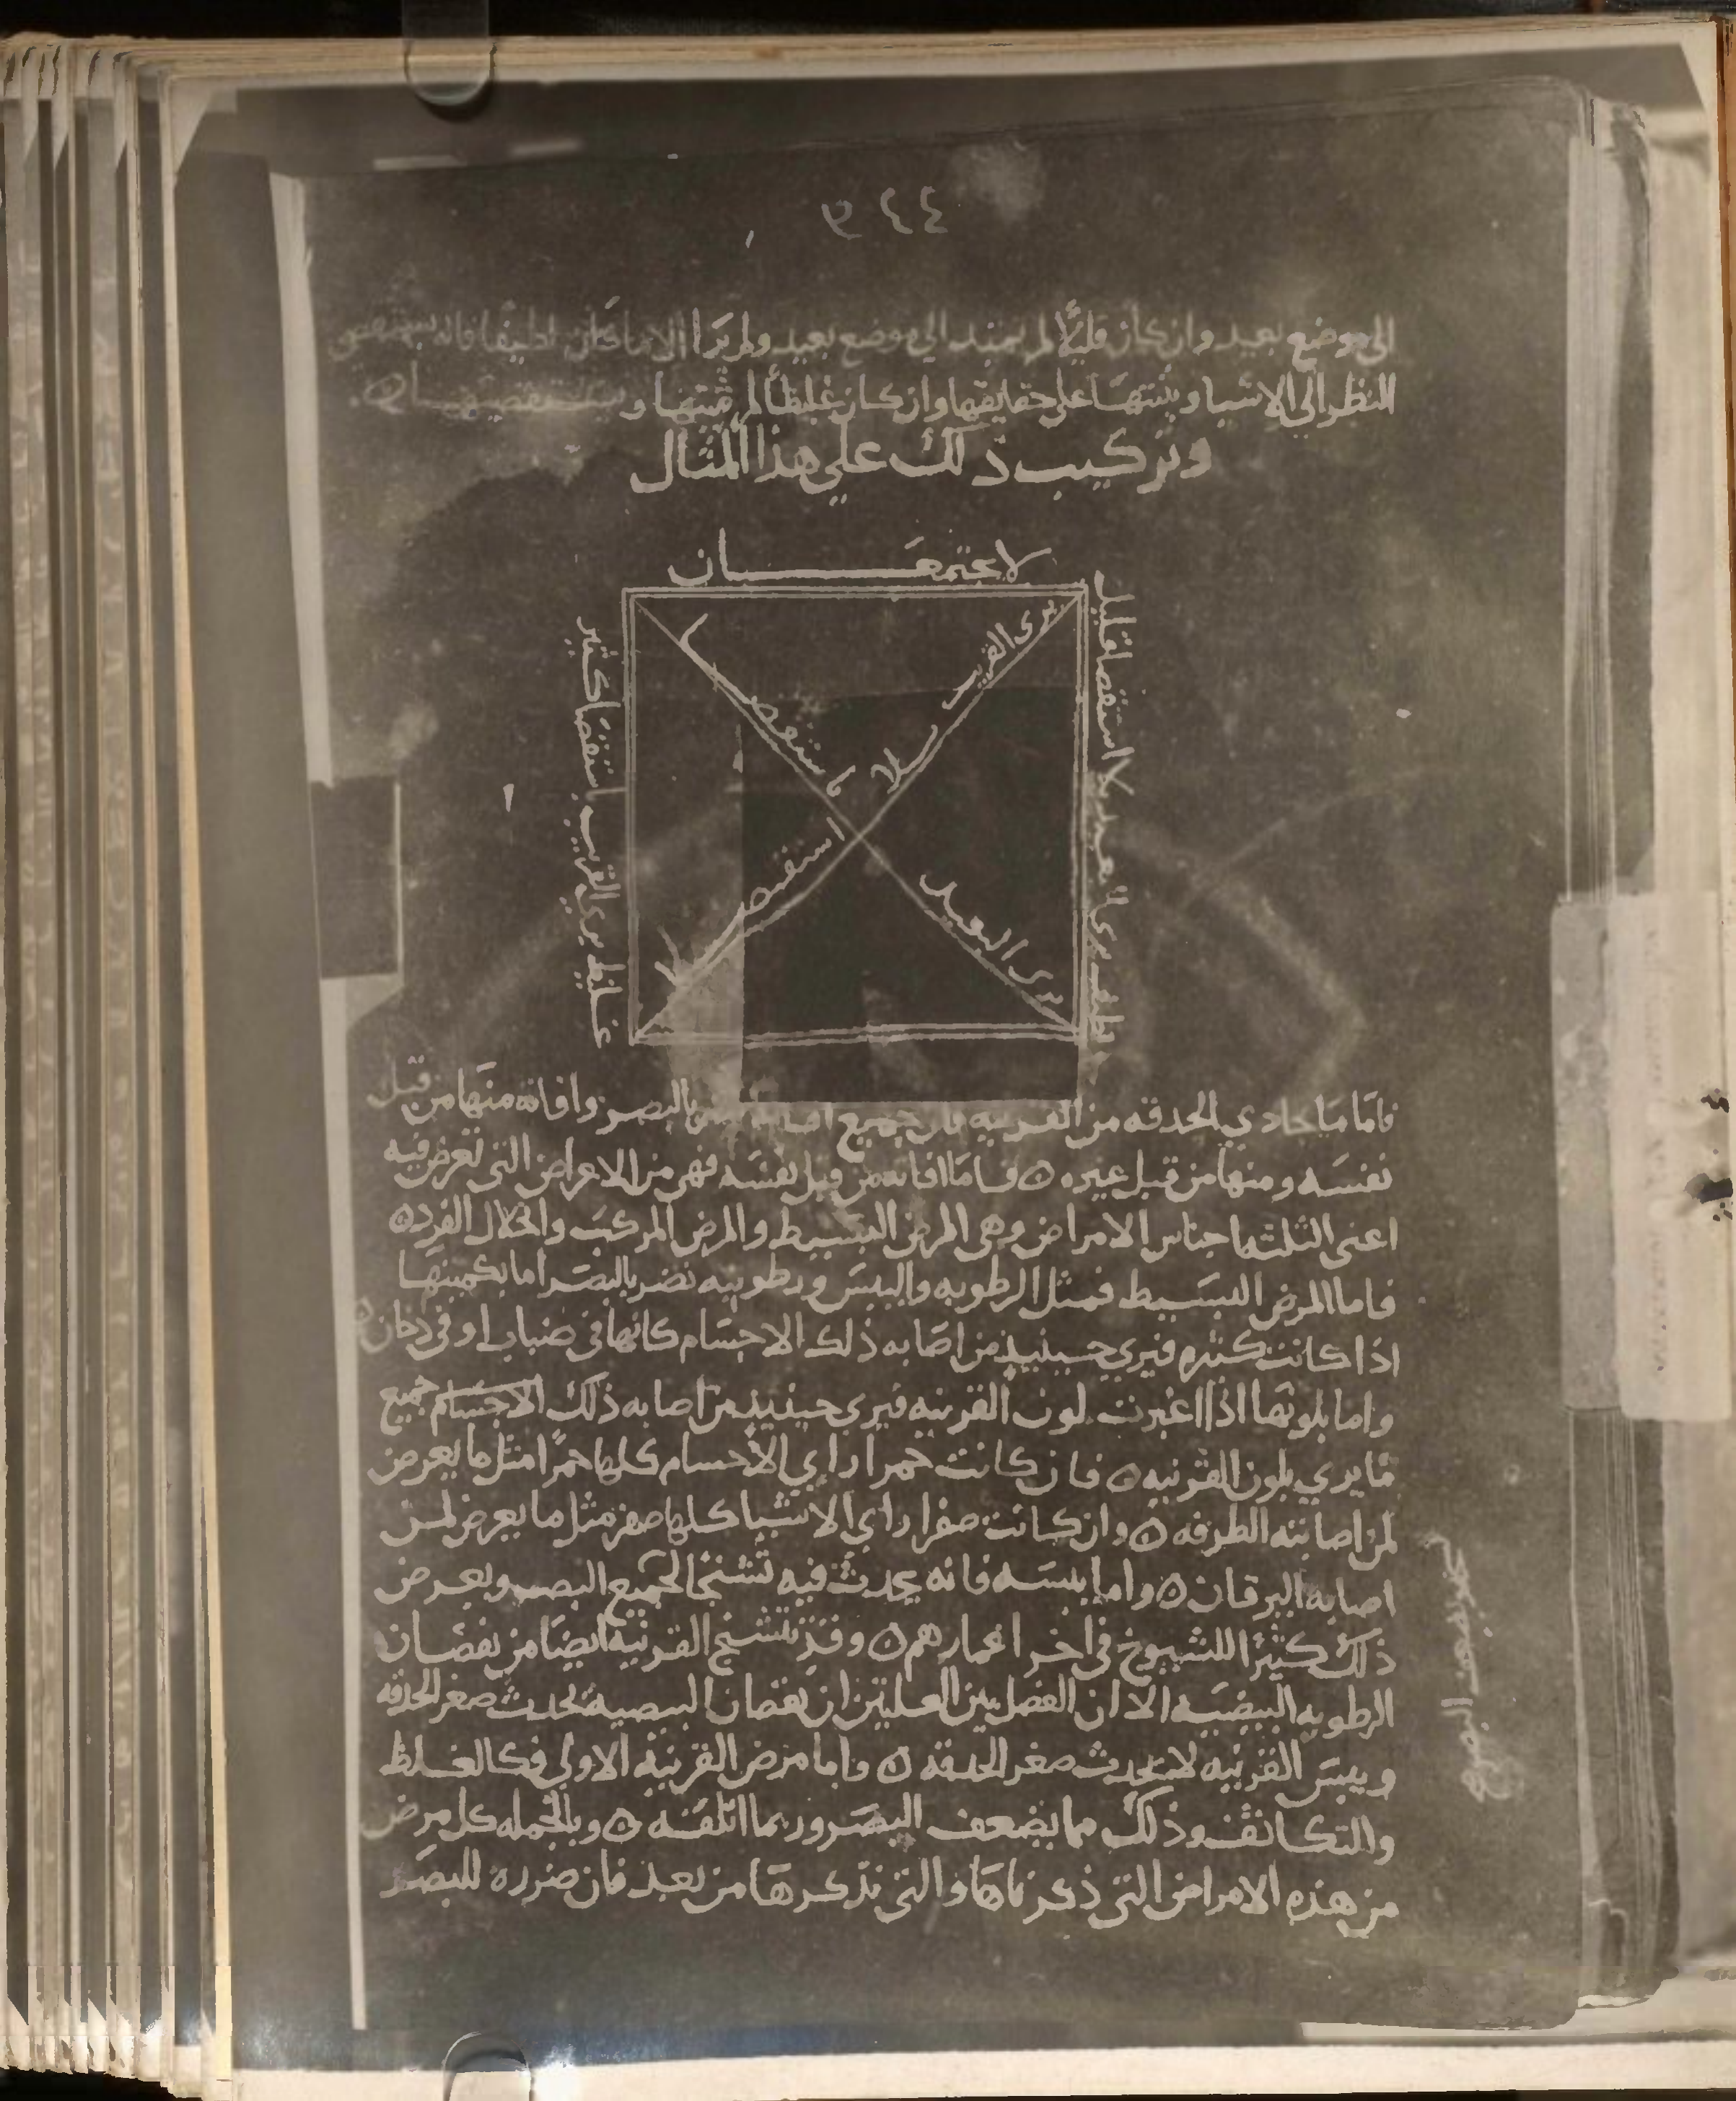 ٤٤٩
الى موضع بعيد وان كان قليلاً لم يمتد الى موضع بعيد ولم ير الا ما كان لطيفا فانه يستقصي
النظر الى الاشيا ويثبتها على حقايقها وان كان غليظاً لم يثبتها و يستقصيها ه
وتركيب ذلك على هذا المثال
لا يجتمعان
لطيف يرى البعيد بلا استقصا قليل
غليظ يرى القريب باستقصا كثير
يرى القريب بلا استقصا
يرى البعيد باستقصا
فاما ما يحادي الحدقه من القرنيه فان جميع بالبصر وافاته منها من قبل
نفسه ومنها من قبل غيره ه فاما افاته من قبل نفسه فهى من الاعراض التى تعرض فيه
اعنى الثلثه اجناس الامراض وهى المرض البسيط والمرض المركب وانحلال الفرد ه
فاما المرض البسيط فمثل الرطوبه واليبس ورطوبته تضر بالبصر اما بكميتها
اذا كانت كثيره فيرى حينيذ من اصابه ذلك الاجسام كانها فى ضباب او فى دخان ه
واما بلونها اذا اغبرت لون القرنيه فيرى حينيذ من اصابه ذلك الاجسام جميع
ما يرى بلون القرنيه ه فان كانت حمرا راى الاجسام كلها حمرا مثل ما يعرض
لمن اصابته الطرفه ه وان كانت صفرا راى الاشيا كلها صفر مثل ما يعرض لمن
اصابه اليرقان ه واما يبسه فانه يحدث فيه تشنجا لجميع البصر ويعرض
ذلك كثيرًا للشيوخ فى اخر اعمارهم ه وقد تتشنج القرنيه ايضا من نقصان
الرطوبه البيضيه الا ان الفصل بين العلتين ان نقصان البيضيه يحدث صغر الحدقه
ويبس القرنيه لا يحدث صغر الحدقه ه واما مرض القرنيه الاولى فكالغلظ
والتكاثف وذلك مما يضعف البصر وربما اتلفه ه وبالجمله كل مرض
من هذه الامراض التى ذكرناها والتى نذكرها من بعد فان ضرره للبصر